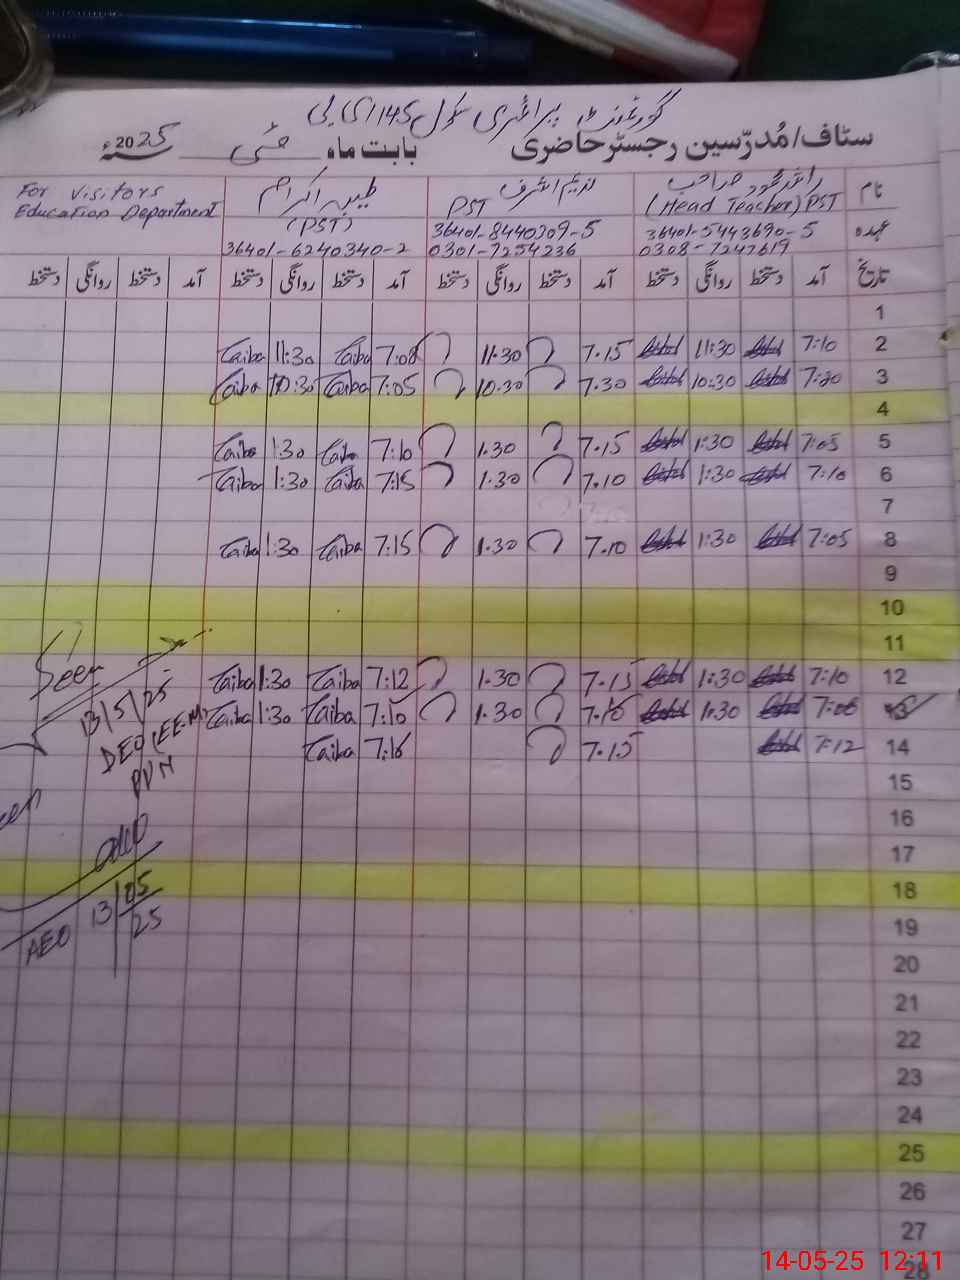 گورنمنٹ پرائمری سکول 145 ای بی
سٹاف/مُدرّسین رجسٹر حاضری بابت ماہ مئی سنہ 2025ء
نام
(Head Teacher) PST
36401-5443690-5
0308-7247619
PST
36401-8440309-5
0301-7254236
طیبہ اکرام
(PST)
36401-6240340-2
For Visitors
Education Department
عہدہ
تاریخ آمد دستخط روانگی دستخط آمد دستخط روانگی دستخط آمد دستخط روانگی دستخط آمد دستخط روانگی دستخط
1
2 7:10 11:30 7.15 11.30 7:08 Taiba 11:30 Taiba
3 10:30 7.30 10.30 7:05 Taiba 10:30 Taiba
4
5 7:05 1:30 7.15 1.30 7:10 Taiba 1:30 Taiba
6 7:10 1:30 7.10 1.30 7:15 Taiba 1:30 Taiba
7
8 7:05 1:30 7.10 1.30 7:15 Taiba 1:30 Taiba
9
10
11
12 7:10 1:30 7.15 1.30 7:12 Taiba 1:30 Taiba
13 1:30 7.10 1.30 7:10 Taiba 1:30 Taiba
14 7:12 7.15 7:16 Taiba
15
16
17
18
19
20
21
22
23
24
25
26
27
28
Seen
13/5/25
DEO (EE-M)
AEO 13/05/25
14-05-25 12:11